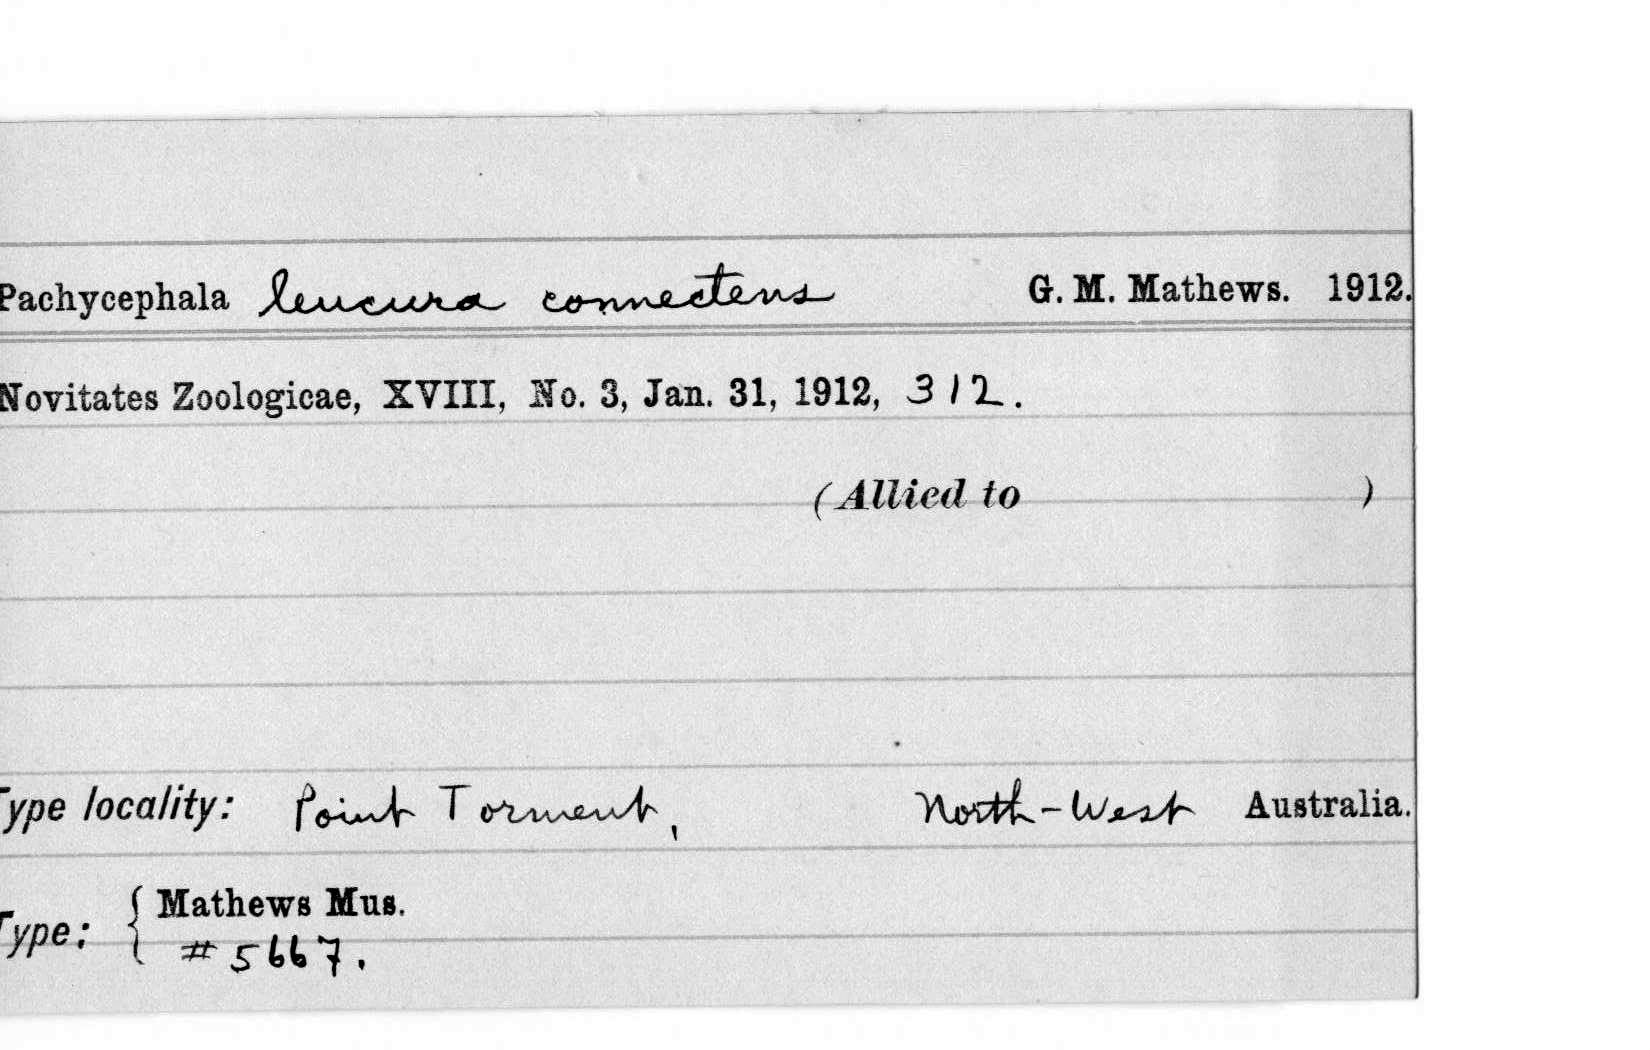 Pachycephala leucura connectens G. M. Mathews. 1912.
Novitates Zoologicae, XVIII, No. 3, Jan. 31, 1912, 312.
(Allied to )
Type locality: Point Torment, North-West Australia.
Type: { Mathews Mus.
# 5667.